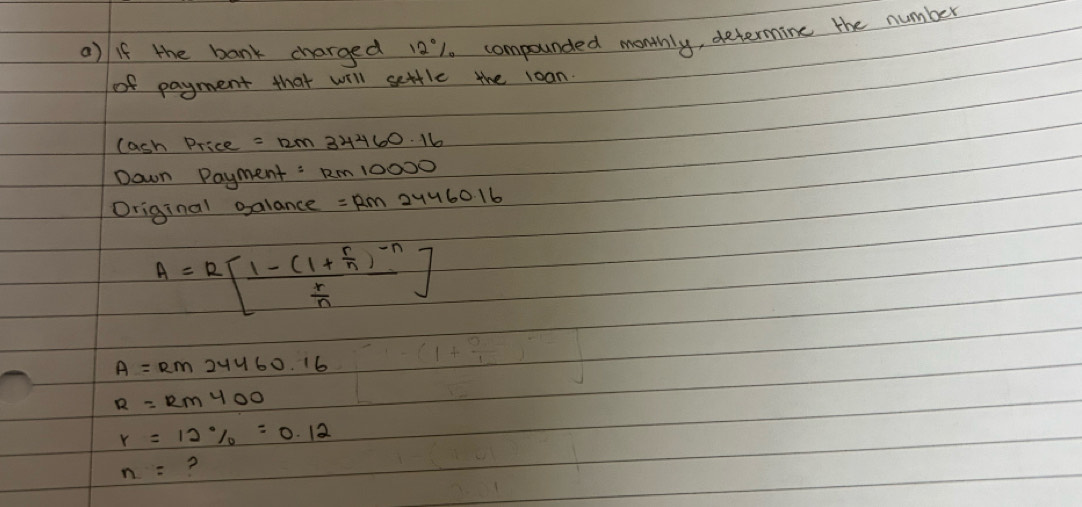 a) if the bank charged 12% compounded monthly, determine the number
of payment that will settle the loan.
Cash Price = RM 34460.16
Down Payment = RM 10000
Original Balance = RM 24460.16
A = R [ 1 - (1 + r/n)^-n / r/n ]
A = RM 24460.16
R = RM 400
r = 12% = 0.12
n = ?